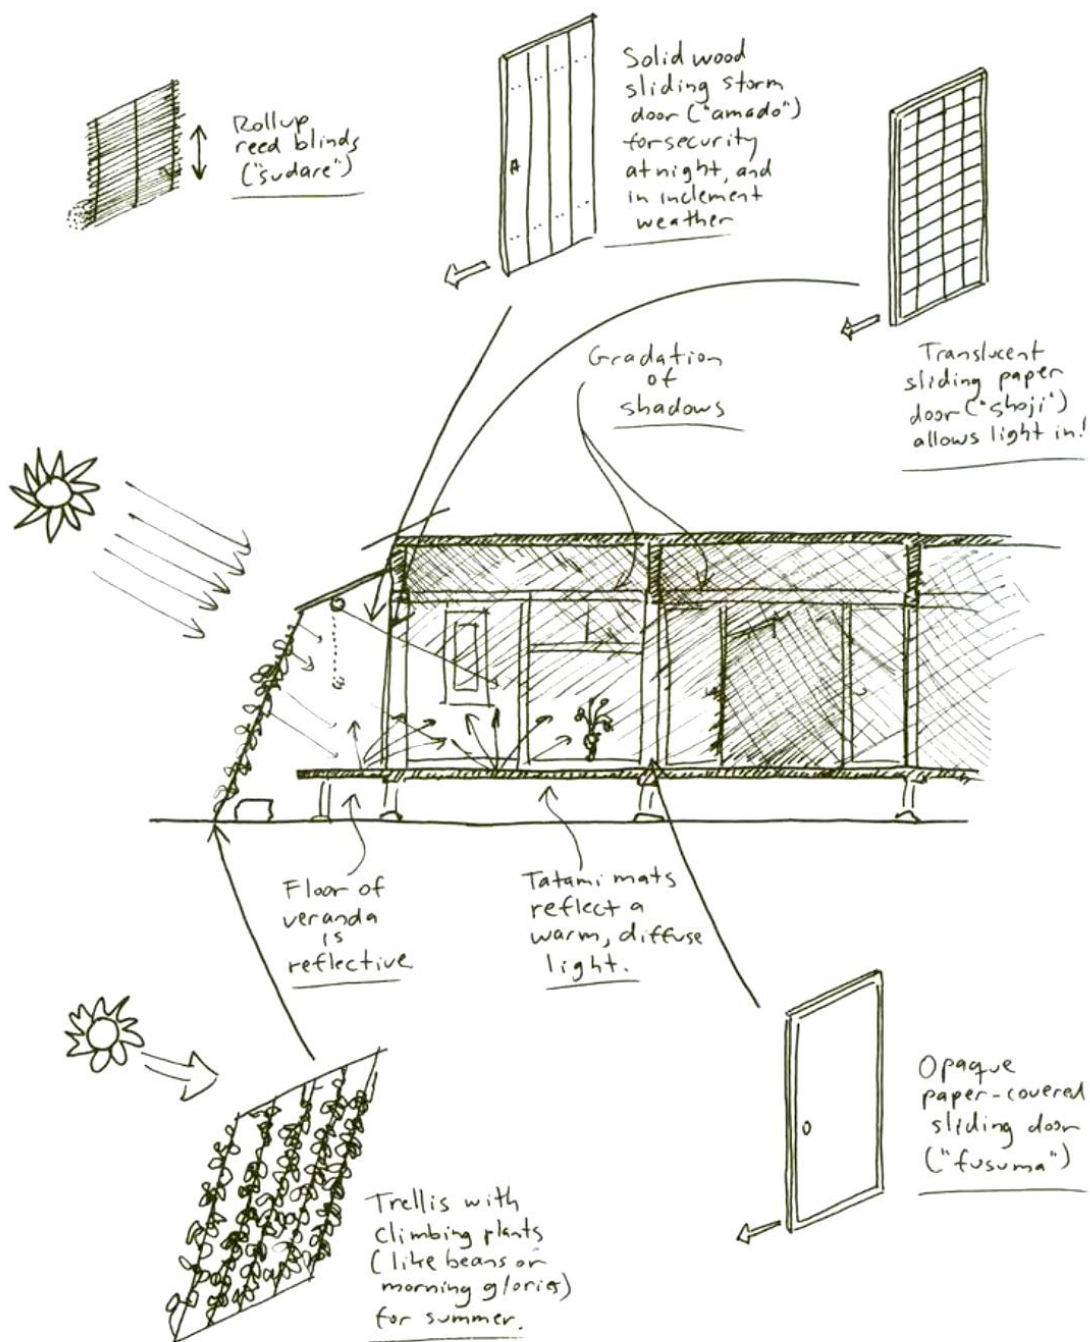 Rollup
reed blinds
("sudare")
Solid wood
sliding storm
door ("amado")
for security
at night, and
in inclement
weather
Translucent
sliding paper
door ("shoji")
allows light in!
Gradation
of
shadows
Floor of
veranda
is
reflective
Tatami mats
reflect a
warm, diffuse
light.
Opaque
paper-covered
sliding door
("fusuma")
Trellis with
climbing plants
(like beans or
morning glories)
for summer.